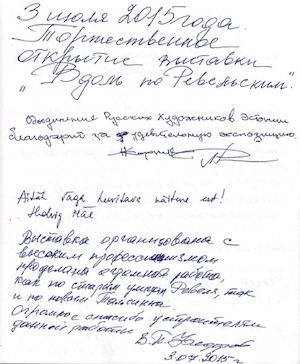 3 июля 2015 года.
Торжественное
открытие выставки
"Вдоль по Ревельским".
Объединение Русских Художников Эстонии
благодарит за удивительную экспозицию.
Aitäh väga huvitava näituse eest!
Hedvig Mäe
Выставка организована с
высоким профессионализмом
проделана огромная работа,
как по старым улицам Ревеля, так
и по новым Таллинна
Огромное спасибо устроителям
данной работы
3.07.2015 г